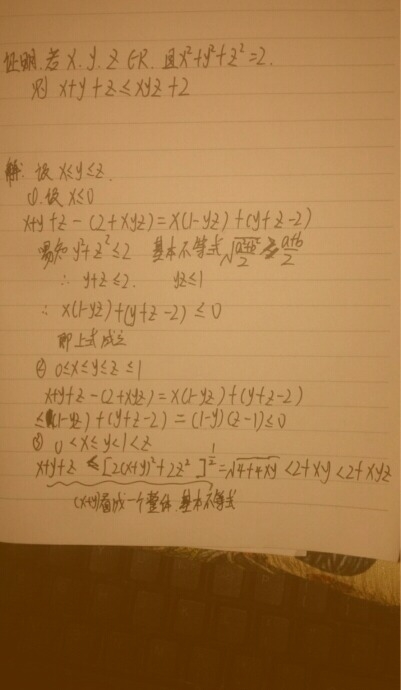 证明.若x.y.z∈R.且x²+y²+z²=2.
则 x+y+z≤xyz+2
解:设 x≤y≤z.
①.设x≤0
x+y+z-(2+xyz)=x(1-yz)+(y+z-2)
易知y²+z²≤2 基本不等式√((a²+b²)/2)≥(a+b)/2
∴ y+z≤2. yz≤1
∴ x(1-yz)+(y+z-2)≤0
即上式成立
② 0≤x≤y≤z≤1
x+y+z-(2+xyz)=x(1-yz)+(y+z-2)
≤(1-yz)+(y+z-2)=(1-y)(z-1)≤0
③ 0<x≤y<1<z
x+y+z≤[2(x+y)²+2z²]^(1/2)=√(4+4xy)<2+xy<2+xyz
(x+y)看成一个整体.基本不等式